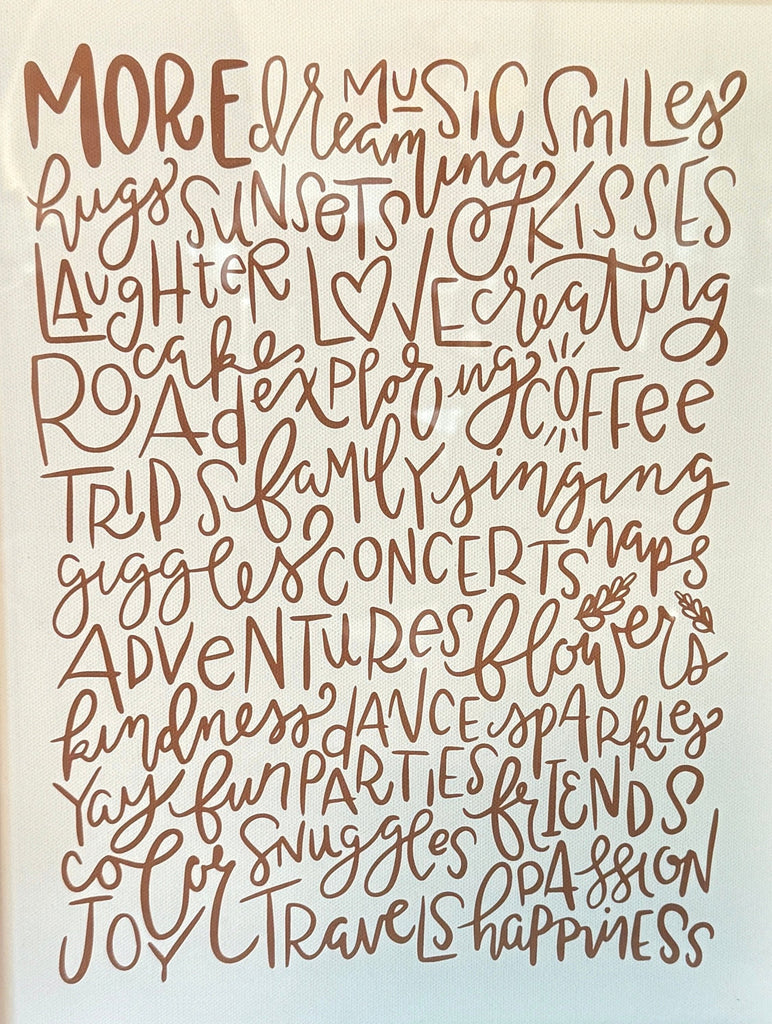 MORE dreaming MUSIC SmILes
hugs SUNSeTS KISSES
LAugHteR LOVE creating
cake exploring COFFee
ROAd TRIPS faMILY singing
giggles CONCERTS naps
ADVeNTuRes flowers
kindness dANCE spARkLes
Yay fun PARTIES frIENDS
color SNuggles PAssION
JOY TRaveLS happinESS